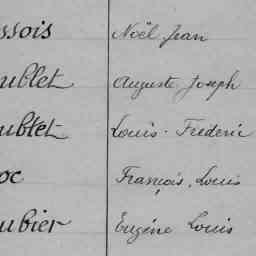 ssois Noël Jean
ublet Auguste Joseph
ubtet Louis-Frédéric
oc François, Louis
ubier Eugène Louis